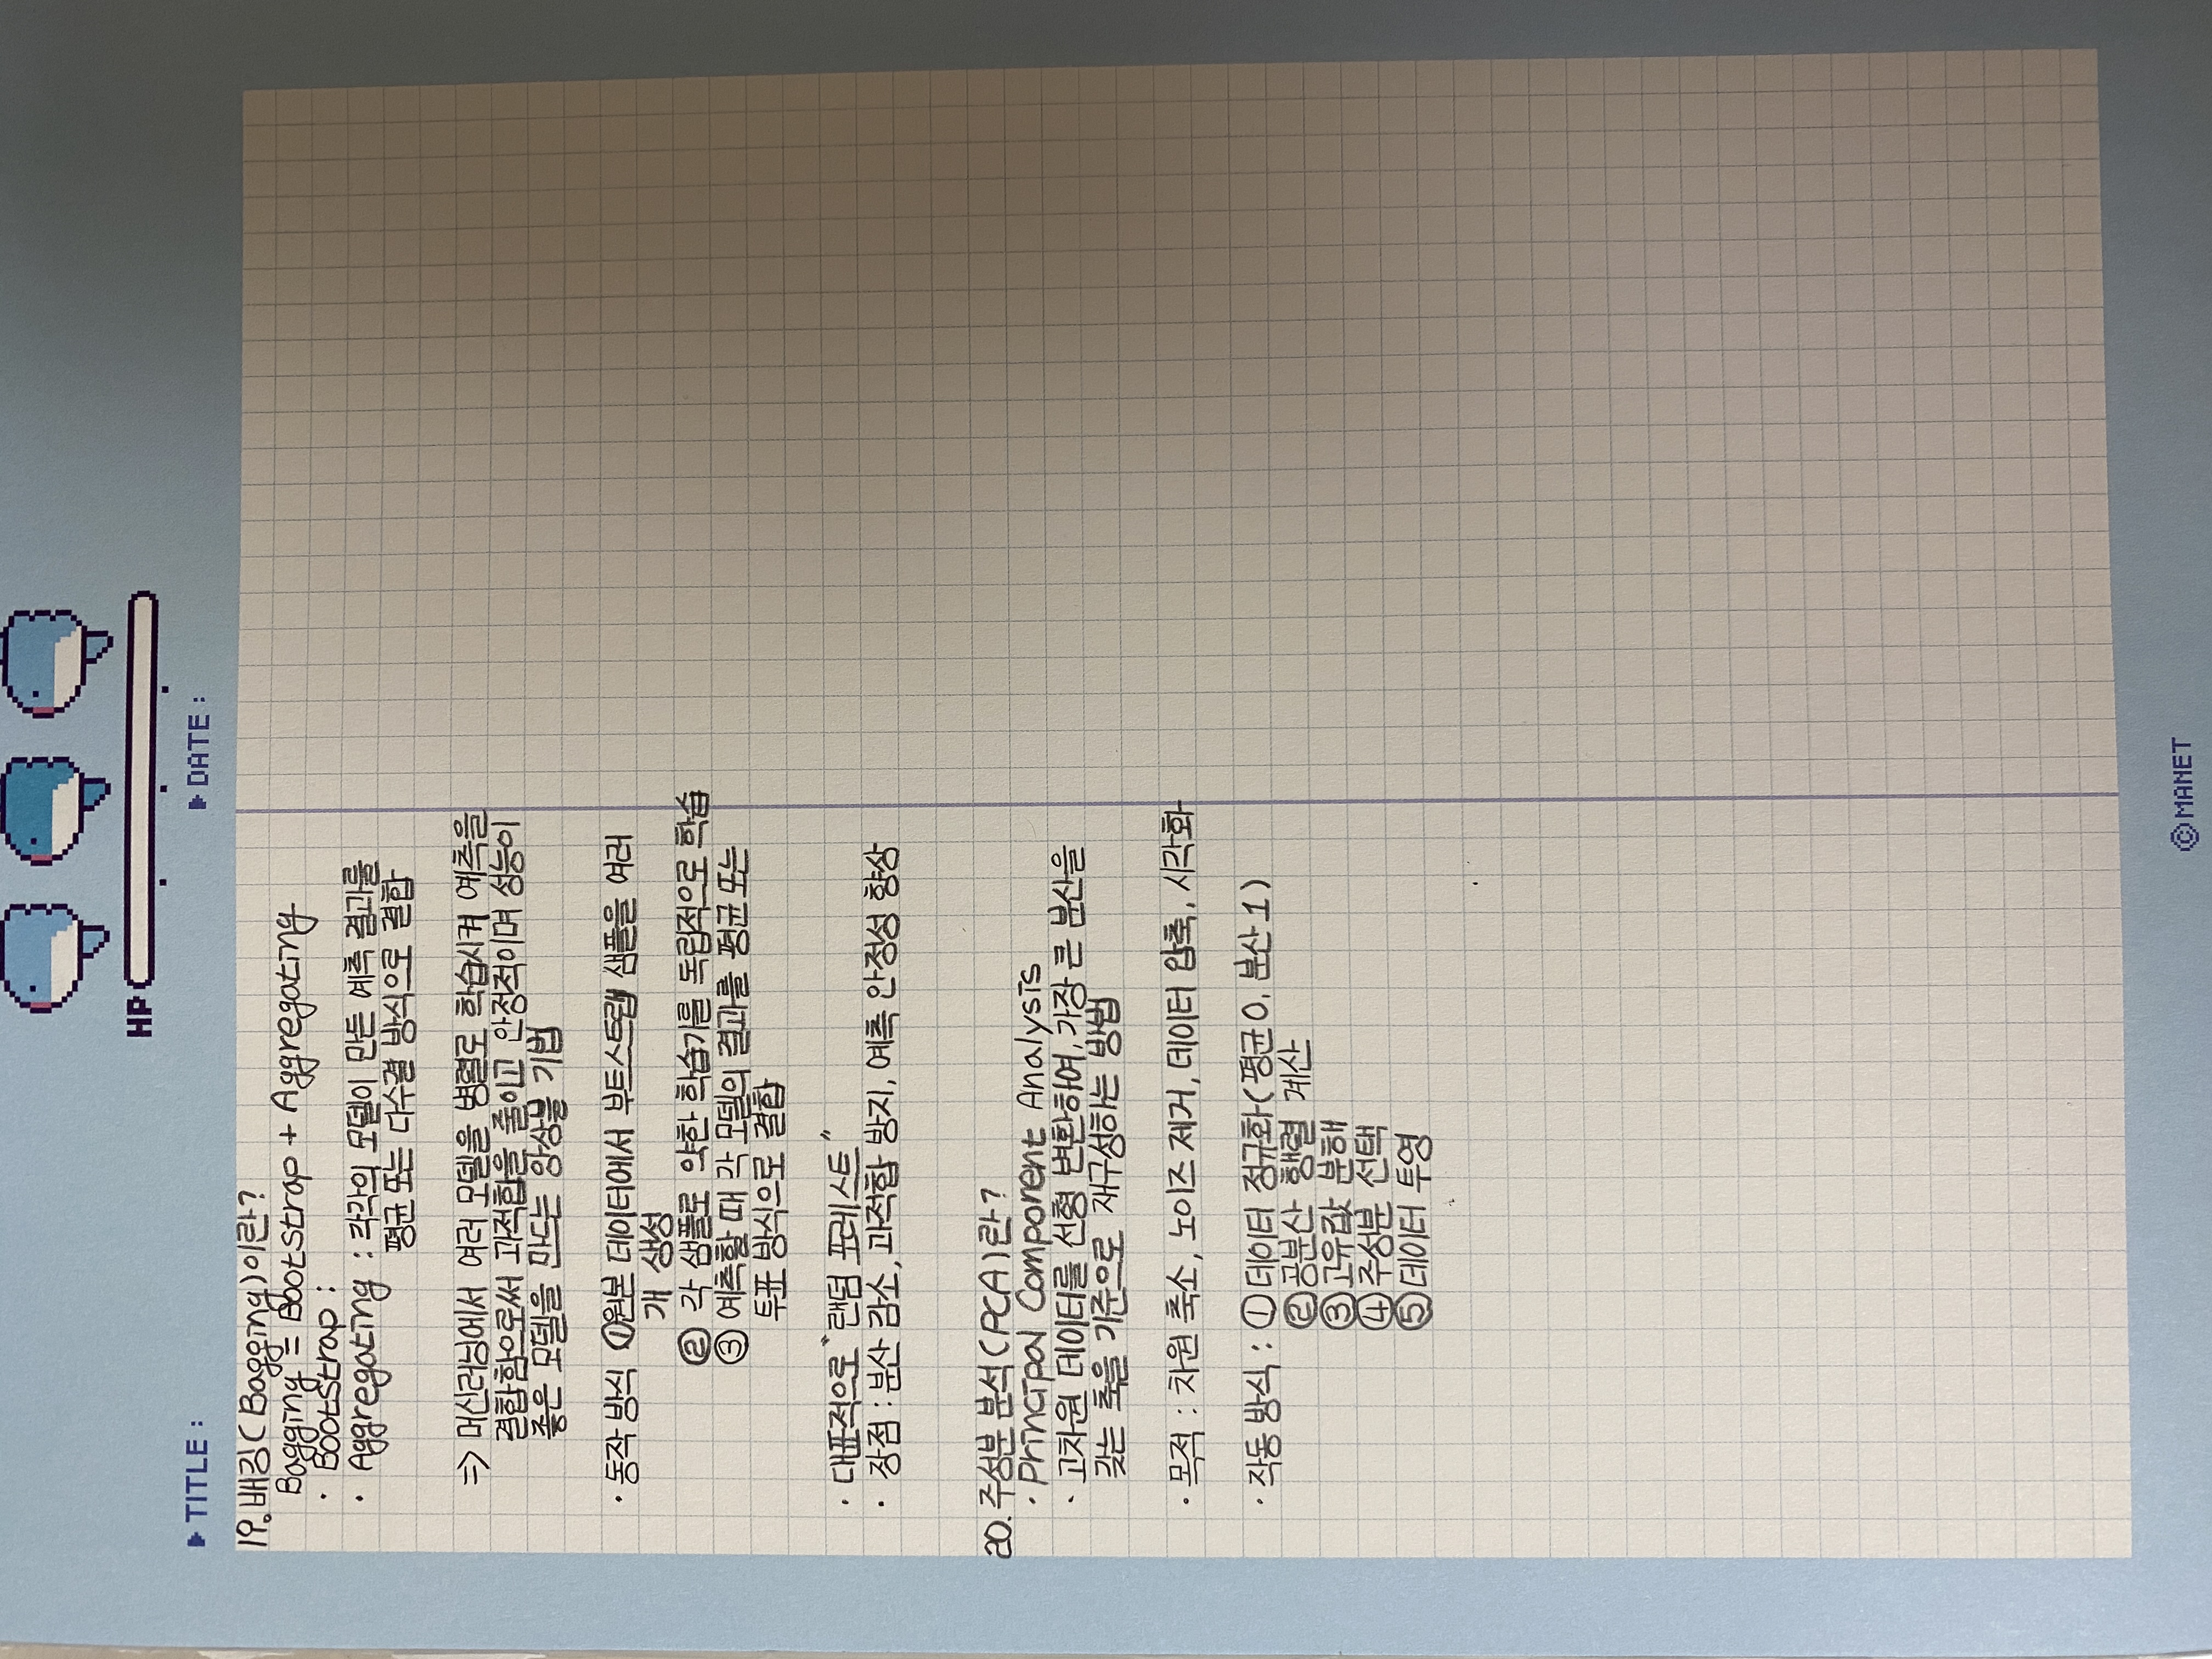 HP
TITLE :
DATE :
19. 배깅(Bagging)이란?
Bagging = Bootstrap + Aggregating
· Bootstrap :
· Aggregating : 각각의 모델이 만든 예측 결과를
평균 또는 다수결 방식으로 결합
=> 머신러닝에서 여러 모델을 병렬로 학습시켜 예측을
결합함으로써 과적합을 줄이고 안정적이며 성능이
좋은 모델을 만드는 앙상블 기법
· 동작 방식 ①원본 데이터에서 부트스트랩 샘플을 여러
개 생성
② 각 샘플로 약한 학습기를 독립적으로 학습
③ 예측할 때 각 모델의 결과를 평균 또는
투표 방식으로 결합
· 대표적으로 "랜덤 포레스트"
· 장점 : 분산 감소, 과적합 방지, 예측 안정성 향상
20. 주성분 분석(PCA)란?
· Principal Component Analysis
· 고차원 데이터를 선형 변환하여, 가장 큰 분산을
갖는 축을 기준으로 재구성하는 방법
· 목적 : 차원 축소, 노이즈 제거, 데이터 압축, 시각화
· 작동 방식 : ① 데이터 정규화(평균 0, 분산 1)
② 공분산 행렬 계산
③ 고유값 분해
④ 주성분 선택
⑤ 데이터 투영
©MANET